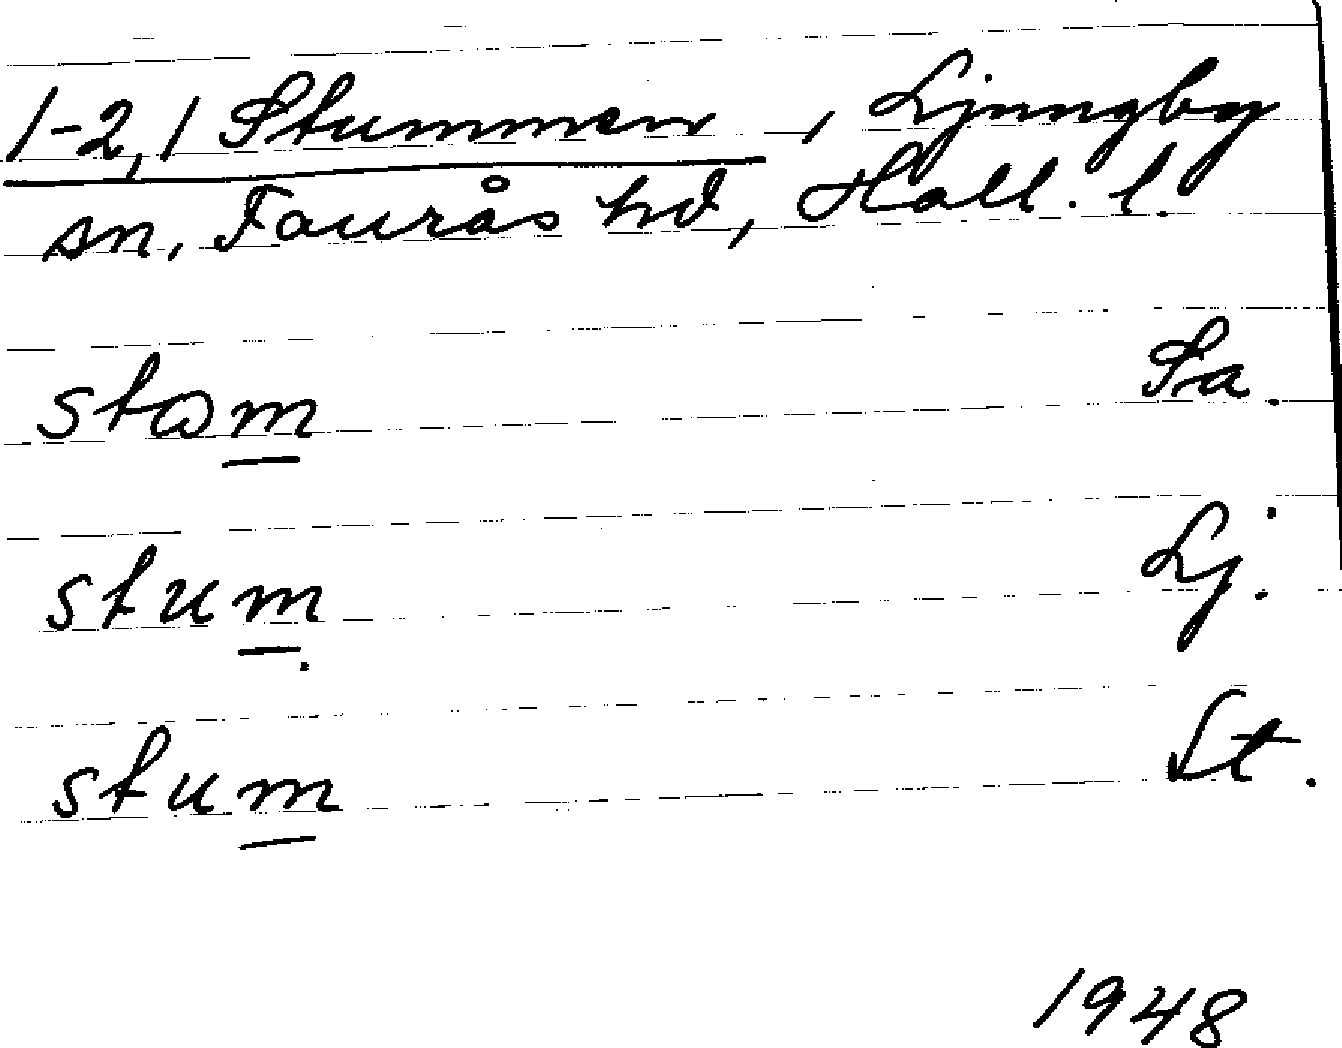 1-2,1 Stummen, Ljungby
sn, Faurås hd, Hall. l.
stɷm Sa.
stum. Lj.
stum St.
1948